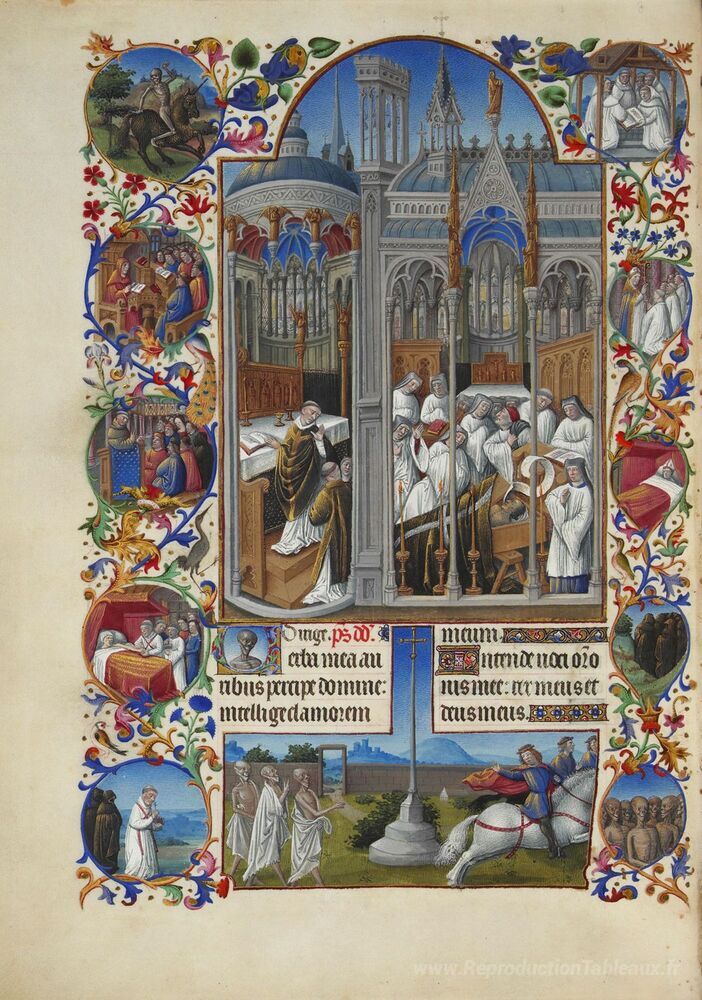 Dirige. ps dd.
erba mea au
ribus percipe domine:
intellige clamorem
meum.
Intende voci oro
nis mee: rex meus et
deus meus.
www.ReproductionTableaux.fr